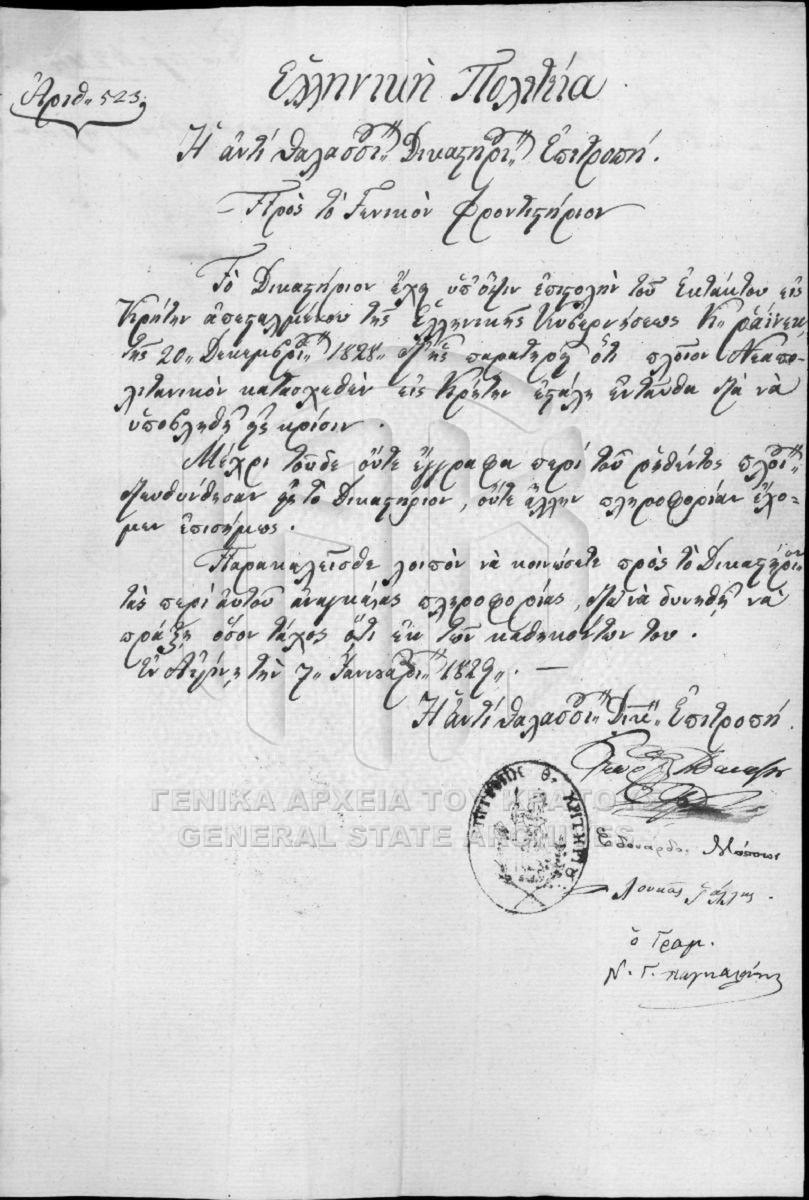 Ἀριθ. 523.
Ἑλληνικὴ Πολιτεία
Ἡ ἀντὶ θαλασσί" Δικαστηρί" Ἐπιτροπή.
Πρὸς τὸ Γενικὸν Φροντιστήριον
Τὸ Δικαστήριον ἔχει ὑπ' ὄψιν ἐπιστολὴν τοῦ Ἐκτάκτου εἰς
Κρήτην ἀπεσταλμένου τῆς Ἑλληνικῆς Κυβερνήσεως Κ" Ῥάινεκ,
τῆς 20" Δεκεμβρί" 1828" δι' ἧς παρατηρεῖ ὅτι πλοῖον Νεαπο-
λιτανικὸν κατασχεθὲν εἰς Κρήτην ἐστάλη ἐνταῦθα διὰ νὰ
ὑποβληθῇ εἰς κρίσιν.
Μέχρι τοῦδε οὔτε ἔγγραφα περὶ τοῦ ῥηθέντος πλοί"
διευθύνθησαν εἰς τὸ Δικαστήριον, οὔτε ἄλλην πληροφορίαν ἔχο-
μεν ἐπισήμως.
Παρακαλεῖσθε λοιπὸν νὰ κοινώσετε πρὸς τὸ Δικαστήριον
τὰς περὶ αὐτοῦ ἀναγκαίας πληροφορίας, διὰ νὰ δυνηθῇ νὰ
πράξῃ ὅσον τάχος ὅ,τι ἐκ τῶν καθηκόντων του.
Ἐν Αἰγίνῃ τὴν 7" Ἰανουαρί" 1829". —
Ἡ ἀντὶ θαλασσί" Δικ" Ἐπιτροπή.
Ἐδουάρδος Μάσσων
Λουκᾶς Ῥάλλης.
ὁ Γραμ.
Ν. Γ. Παγκαλάκης
ΓΕΝΙΚΑ ΑΡΧΕΙΑ ΤΟΥ ΚΡΑΤΟΥΣ
GENERAL STATE ARCHIVES